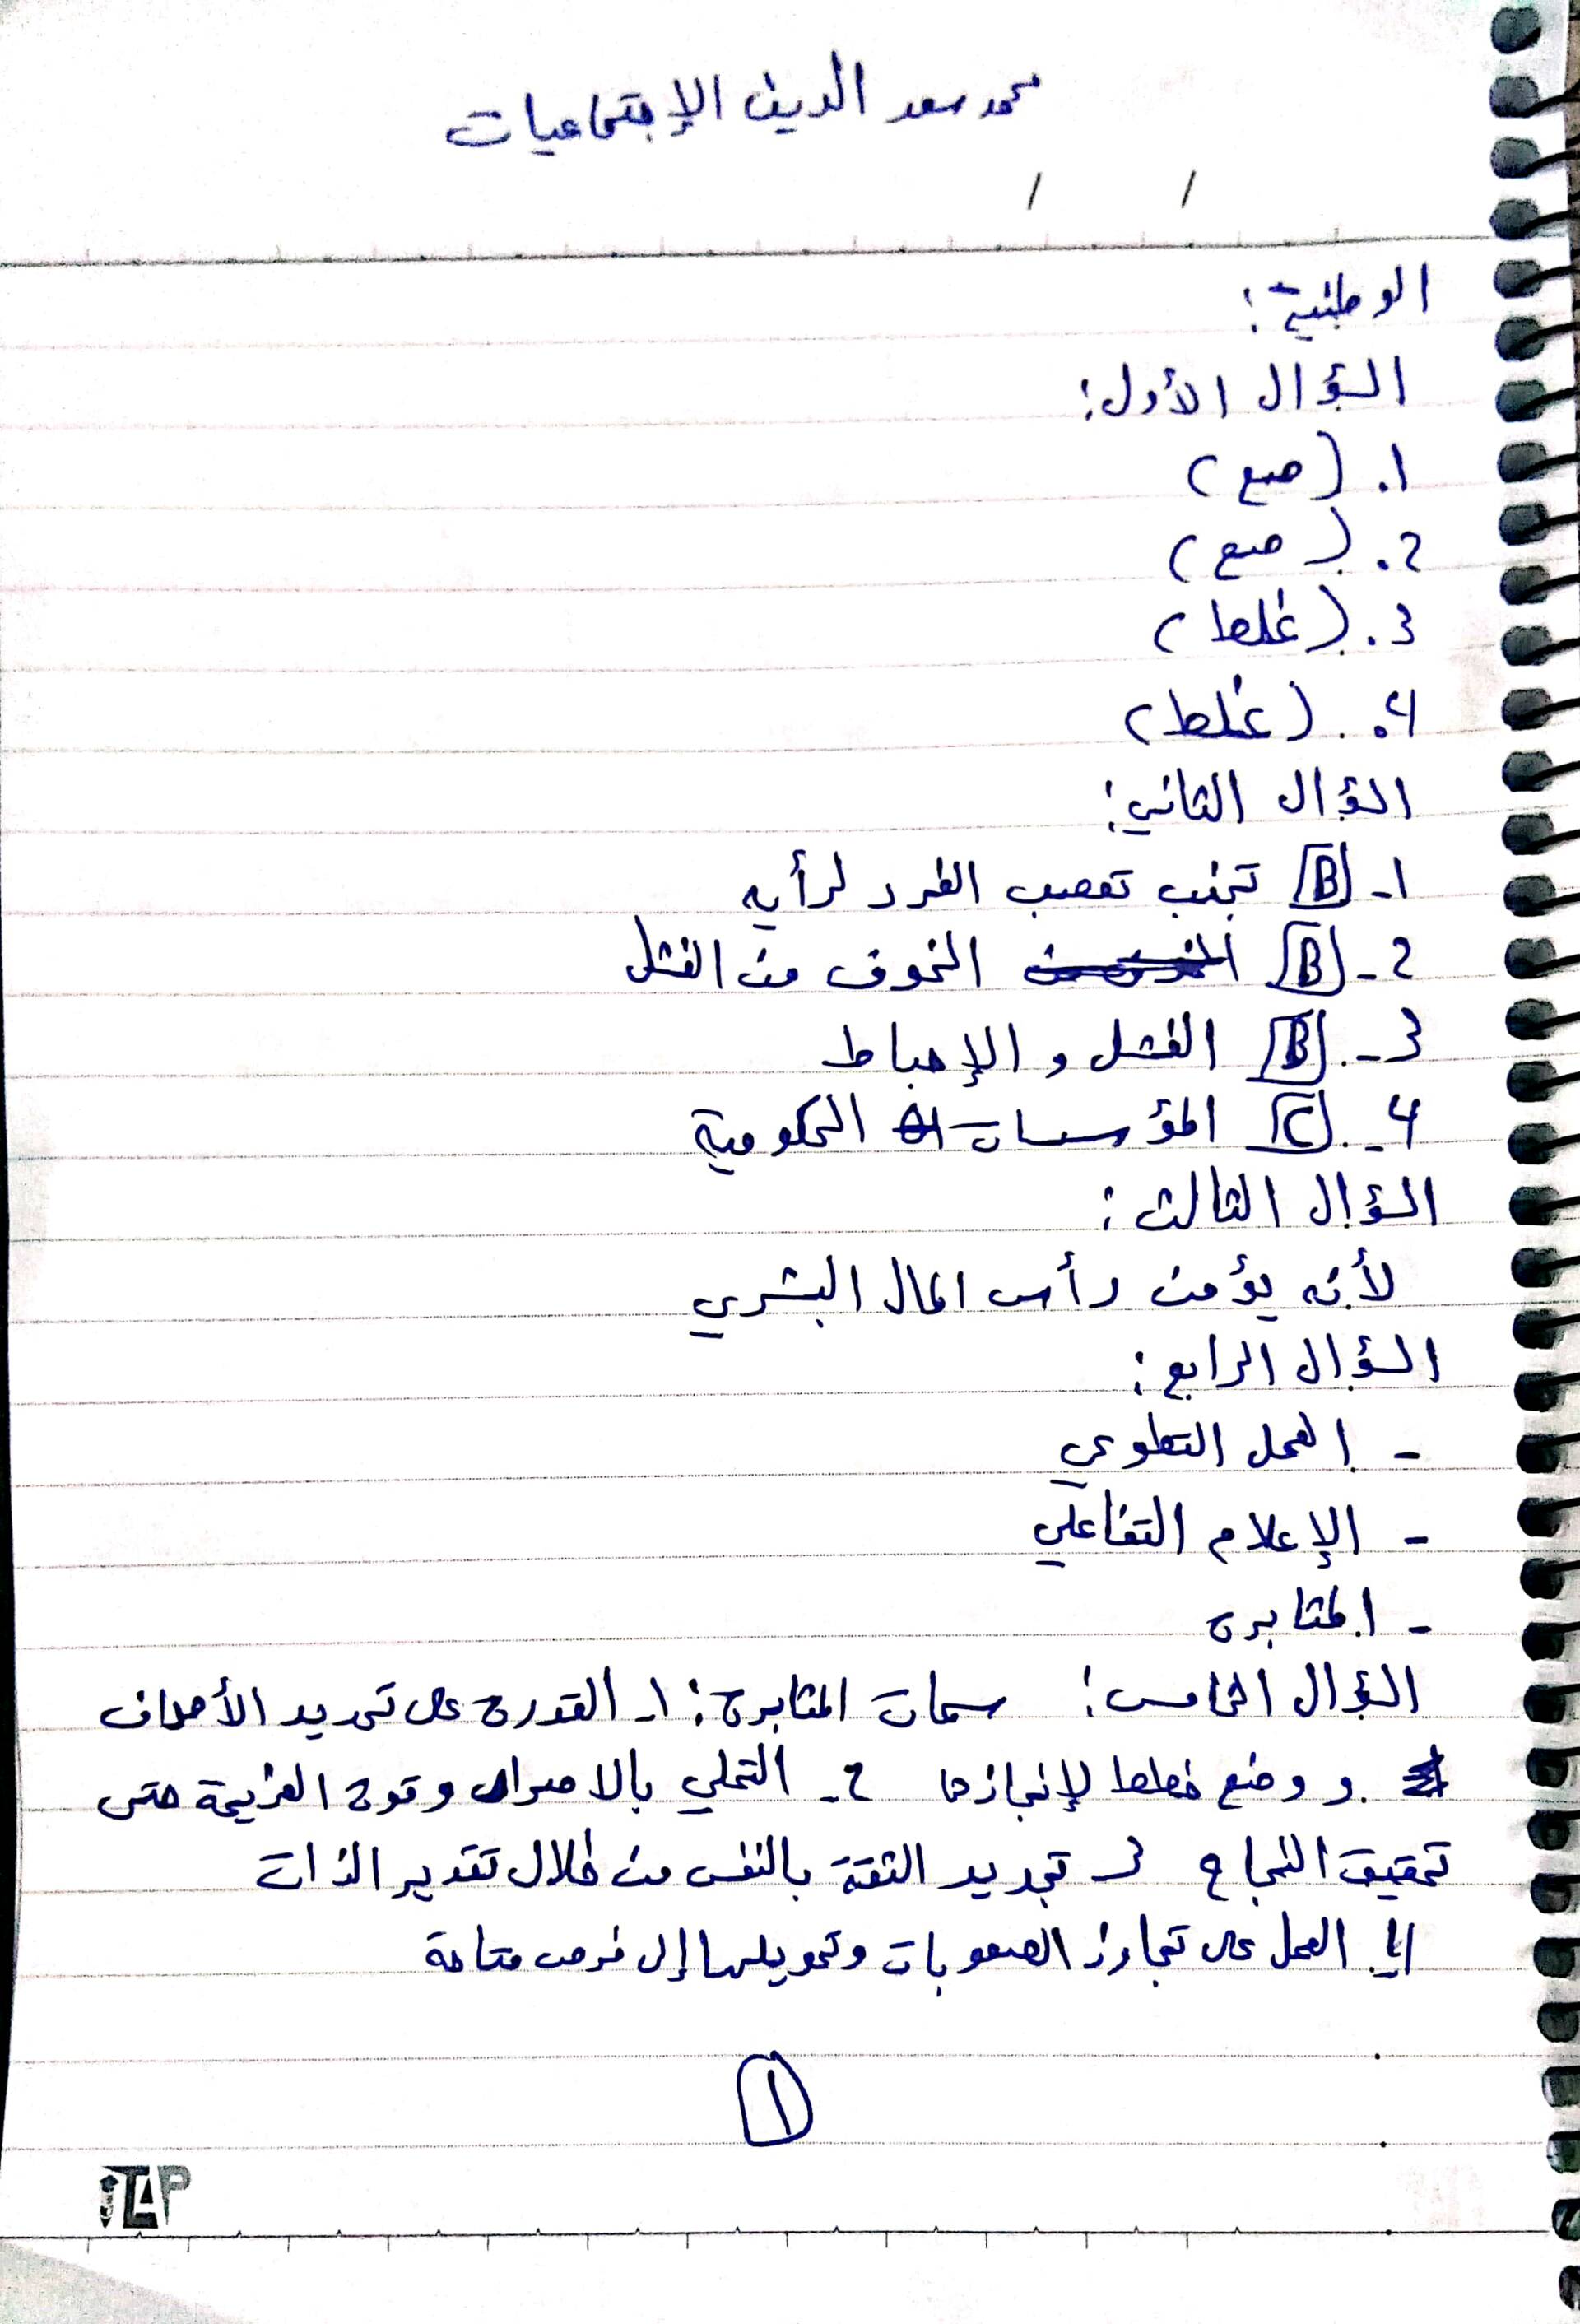 محمد سعد الدين الإجتماعيات
/ /
الوطنية:
السؤال الأول:
1. (صح)
2. (صح)
3. (غلط)
4. (غلط)
السؤال الثاني:
1- B تجنب تعصب الفرد لرأيه
2- B الخوف من الفشل
3- B الفشل و الإحباط
4- C المؤسسات الحكومية
السؤال الثالث:
لأنه يؤمن رأس المال البشري
السؤال الرابع:
- العمل التطوعي
- الإعلام التفاعلي
- المثابرة
السؤال الخامس: سمات المثابرة: 1- القدرة على تحديد الأهداف
و وضع خطط لإنجازها 2- التحلي بالاصرار وقوة العزيمة حتى
تحقيق النجاح 3- تجديد الثقة بالنفس من خلال تقدير الذات
4- العمل على تجاوز الصعوبات وتحويلها إلى فرص متاحة
1
TAP